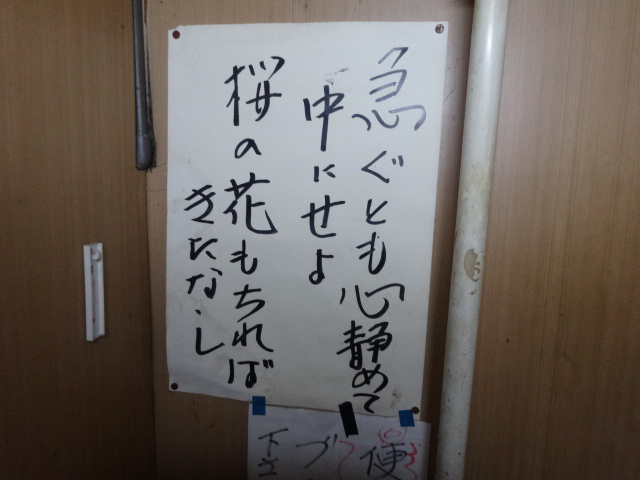 急ぐとも心静めて
中にせよ
桜の花もちれば
きたなし
便
ブ
下さ